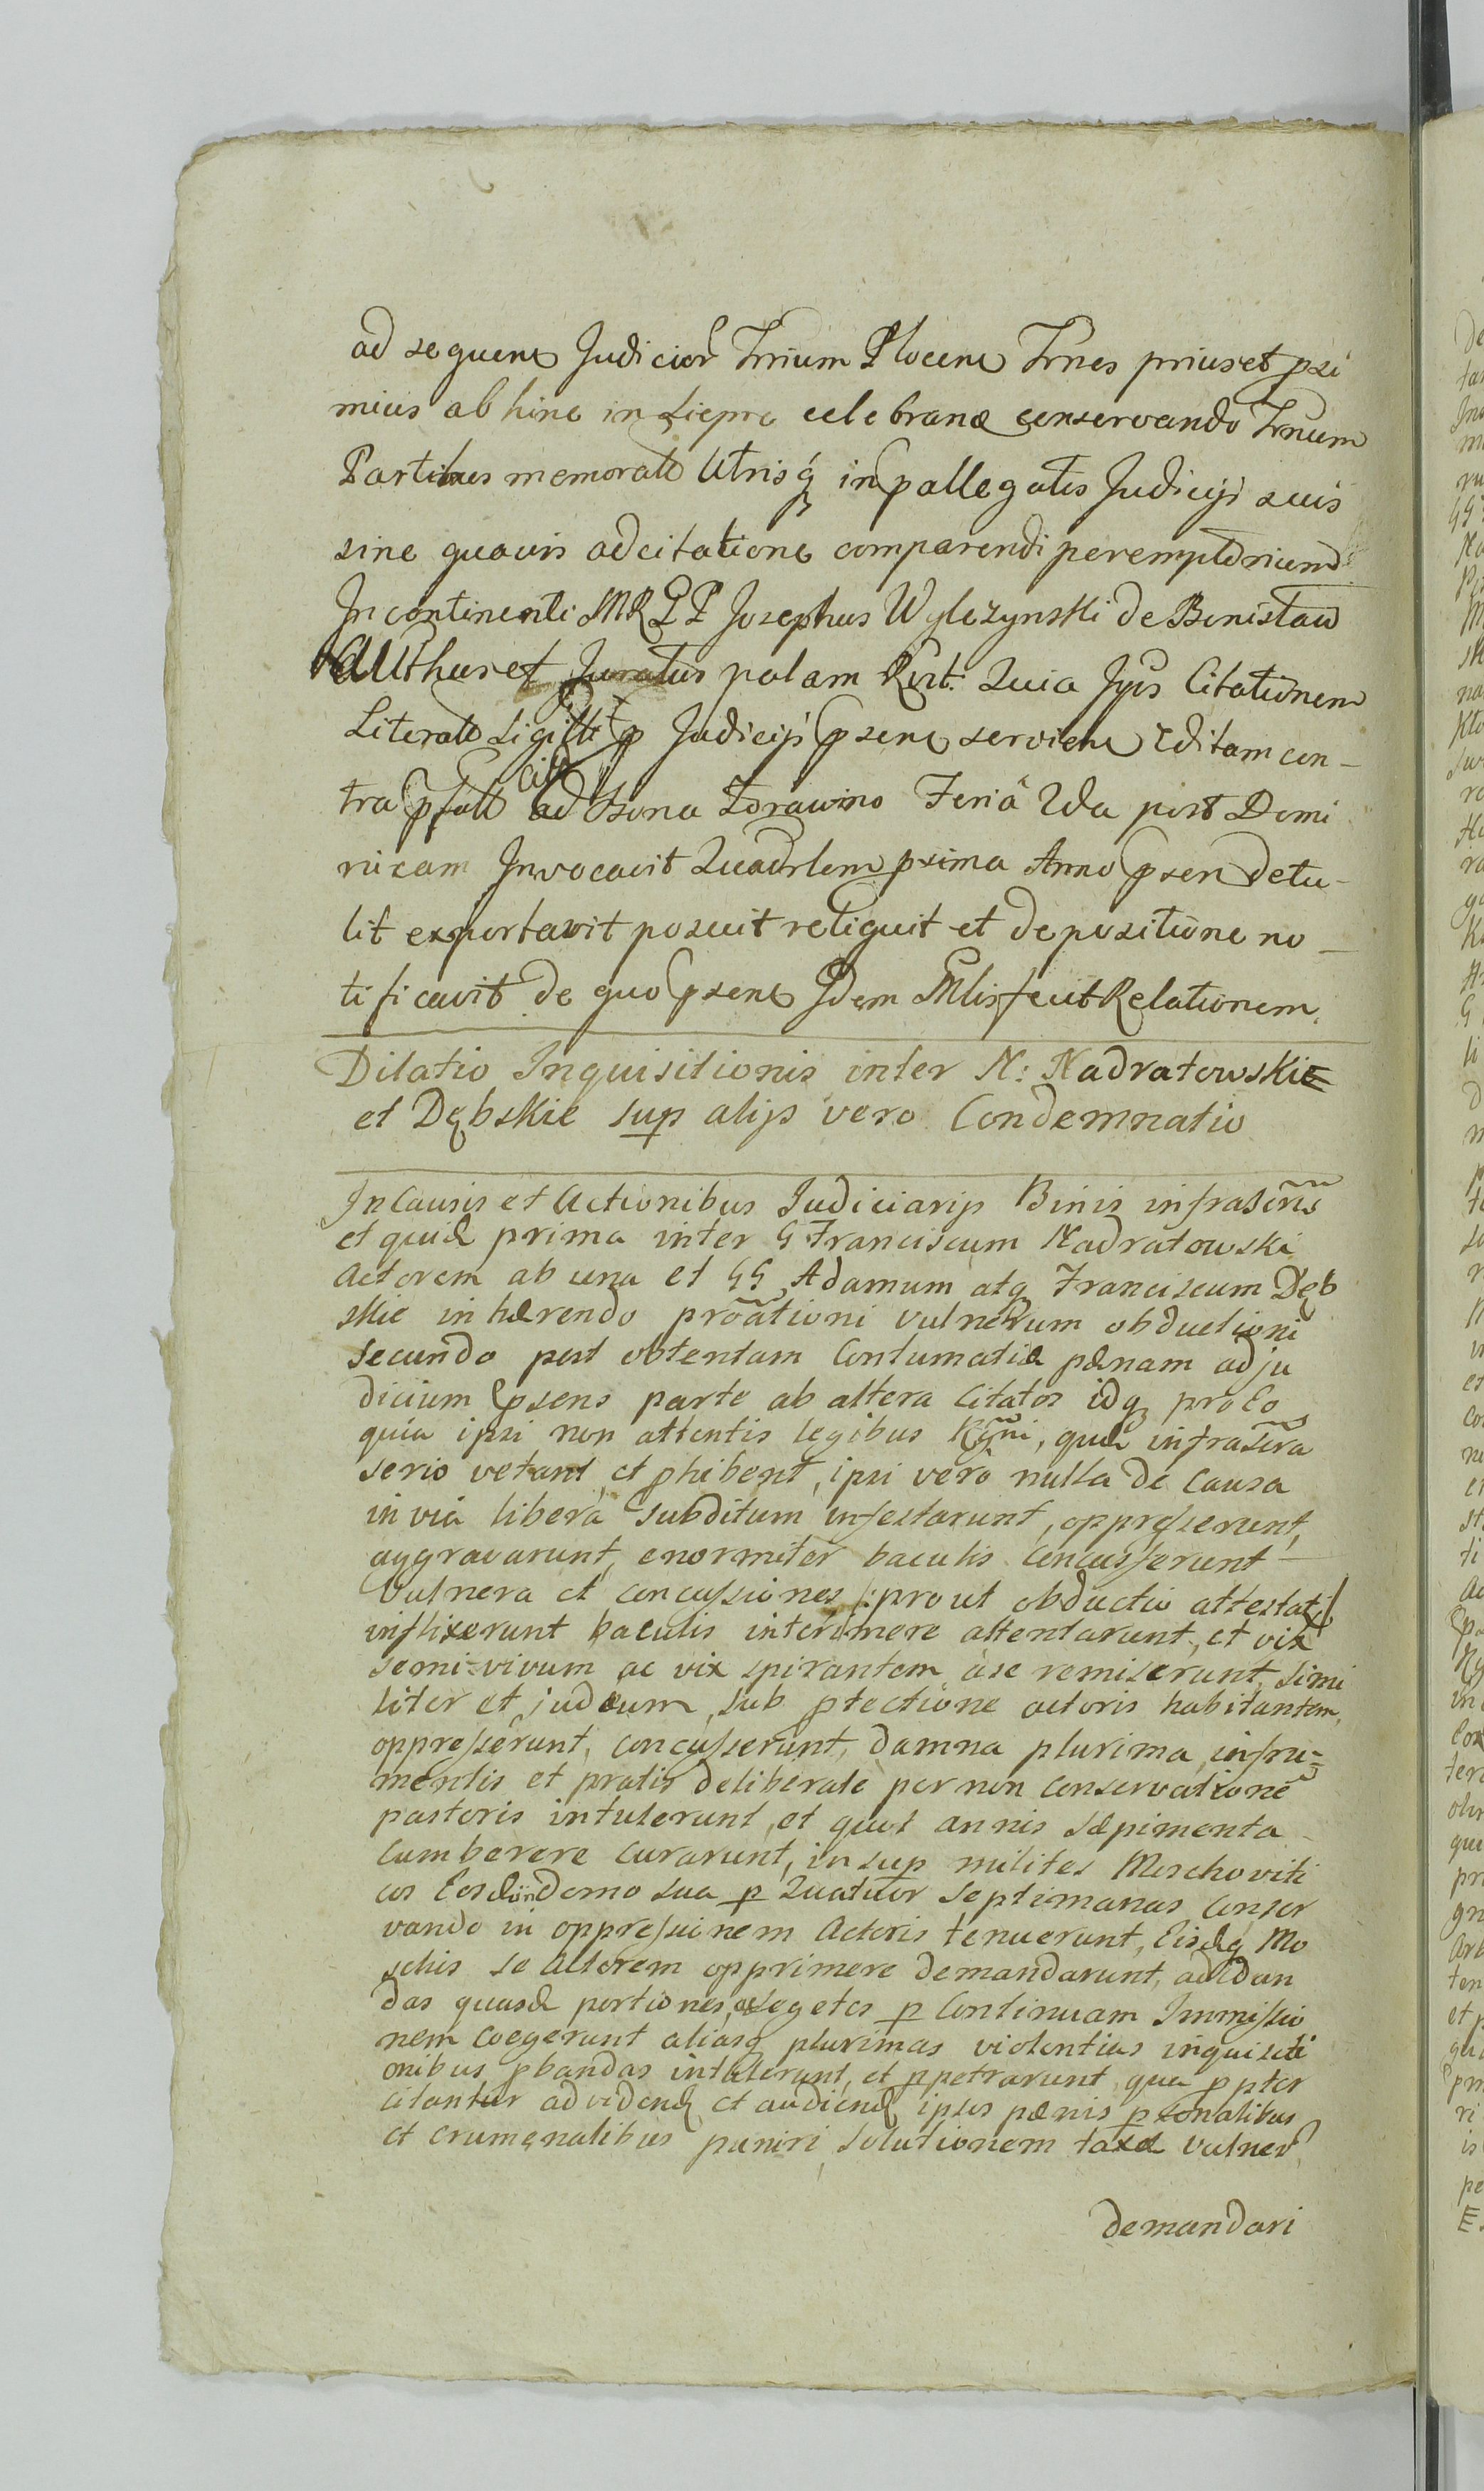 ad sequens Judicior Trrium Plocens Trnes prius et pxi
mius ab hinc in Sieprc celebrand conservando Trnum
Partibus memorat Utrisq in pallegatis Judicijs suis
sine quavis adcitatione comparendi peremptorium
In continenti MRPP Josephus Wylezynski de Bonislaw
Authus et Juratus palam Rcrt: Quia Ipis Citationem
Literato Sigillt p Judicijs psens serviens Editam con-
tra psatt ad Bona Zorawino Feria 2da post Domi
nicam Invocavit Quadrlem pxima Anno psen detu-
lit exportavit posuit reliquit et depositione no-
tificavit de quo psens Idem Mlis fecit Relationem.
Dilatio Inquisitionis inter N: Nadratowskie
et Dębskie sup alijs vero Condemnatio
In Causis et Actionibus Judiciarijs Binis infrascris
et quid prima inter G Franciscum Nadratowski
Actorem ab una et GG Adamum atq Franciscum Dęb
skie inhærendo proationi vulnerum obductioni
secundo post obtentam Contumatiæ pænam ad ju
dicium psens parte ab altera Citatos idq pro Eo
quia ipsi non attentis legibus Rgni, quæ infrascra
serio vetant et phibent, ipsi vero nulla de causa
in via libera subditum infestarunt, oppresserunt,
aggravarunt, enormiter baculis concusserunt
vulnera et concussiones /: prout obductio attestat:/
inflixerunt baculis interimere attentarunt, et vix
semi-vivum ac vix spirantem a se remiserunt, simi
liter et judæum, sub ptectione actoris habitantem,
oppresserunt, concusserunt, damna plurima in fru=
mentis et pratis deliberate per non conservatione
pastoris intulerunt, et quot annis sæpimenta
cumberere curarunt, in sup milites Moschoviti
cos Eosd in domo sua p Quatuor Septimanas conser
vando in oppressionem Actoris tenuerunt, Eisdq Mo
schis se Actorem opprimere demandarunt, ad dan
das quasd portiones, segetes p Continuam Immissio
nem coegerunt aliasq plurimas violentias inquisiti
onibus pbandas intulerunt, et ppetrarunt, qua p pter
citantur ad vidend et audiend ipsos pænis psonalibus
et crumenalibus puniri, solutionem taxæ vulner
demandari